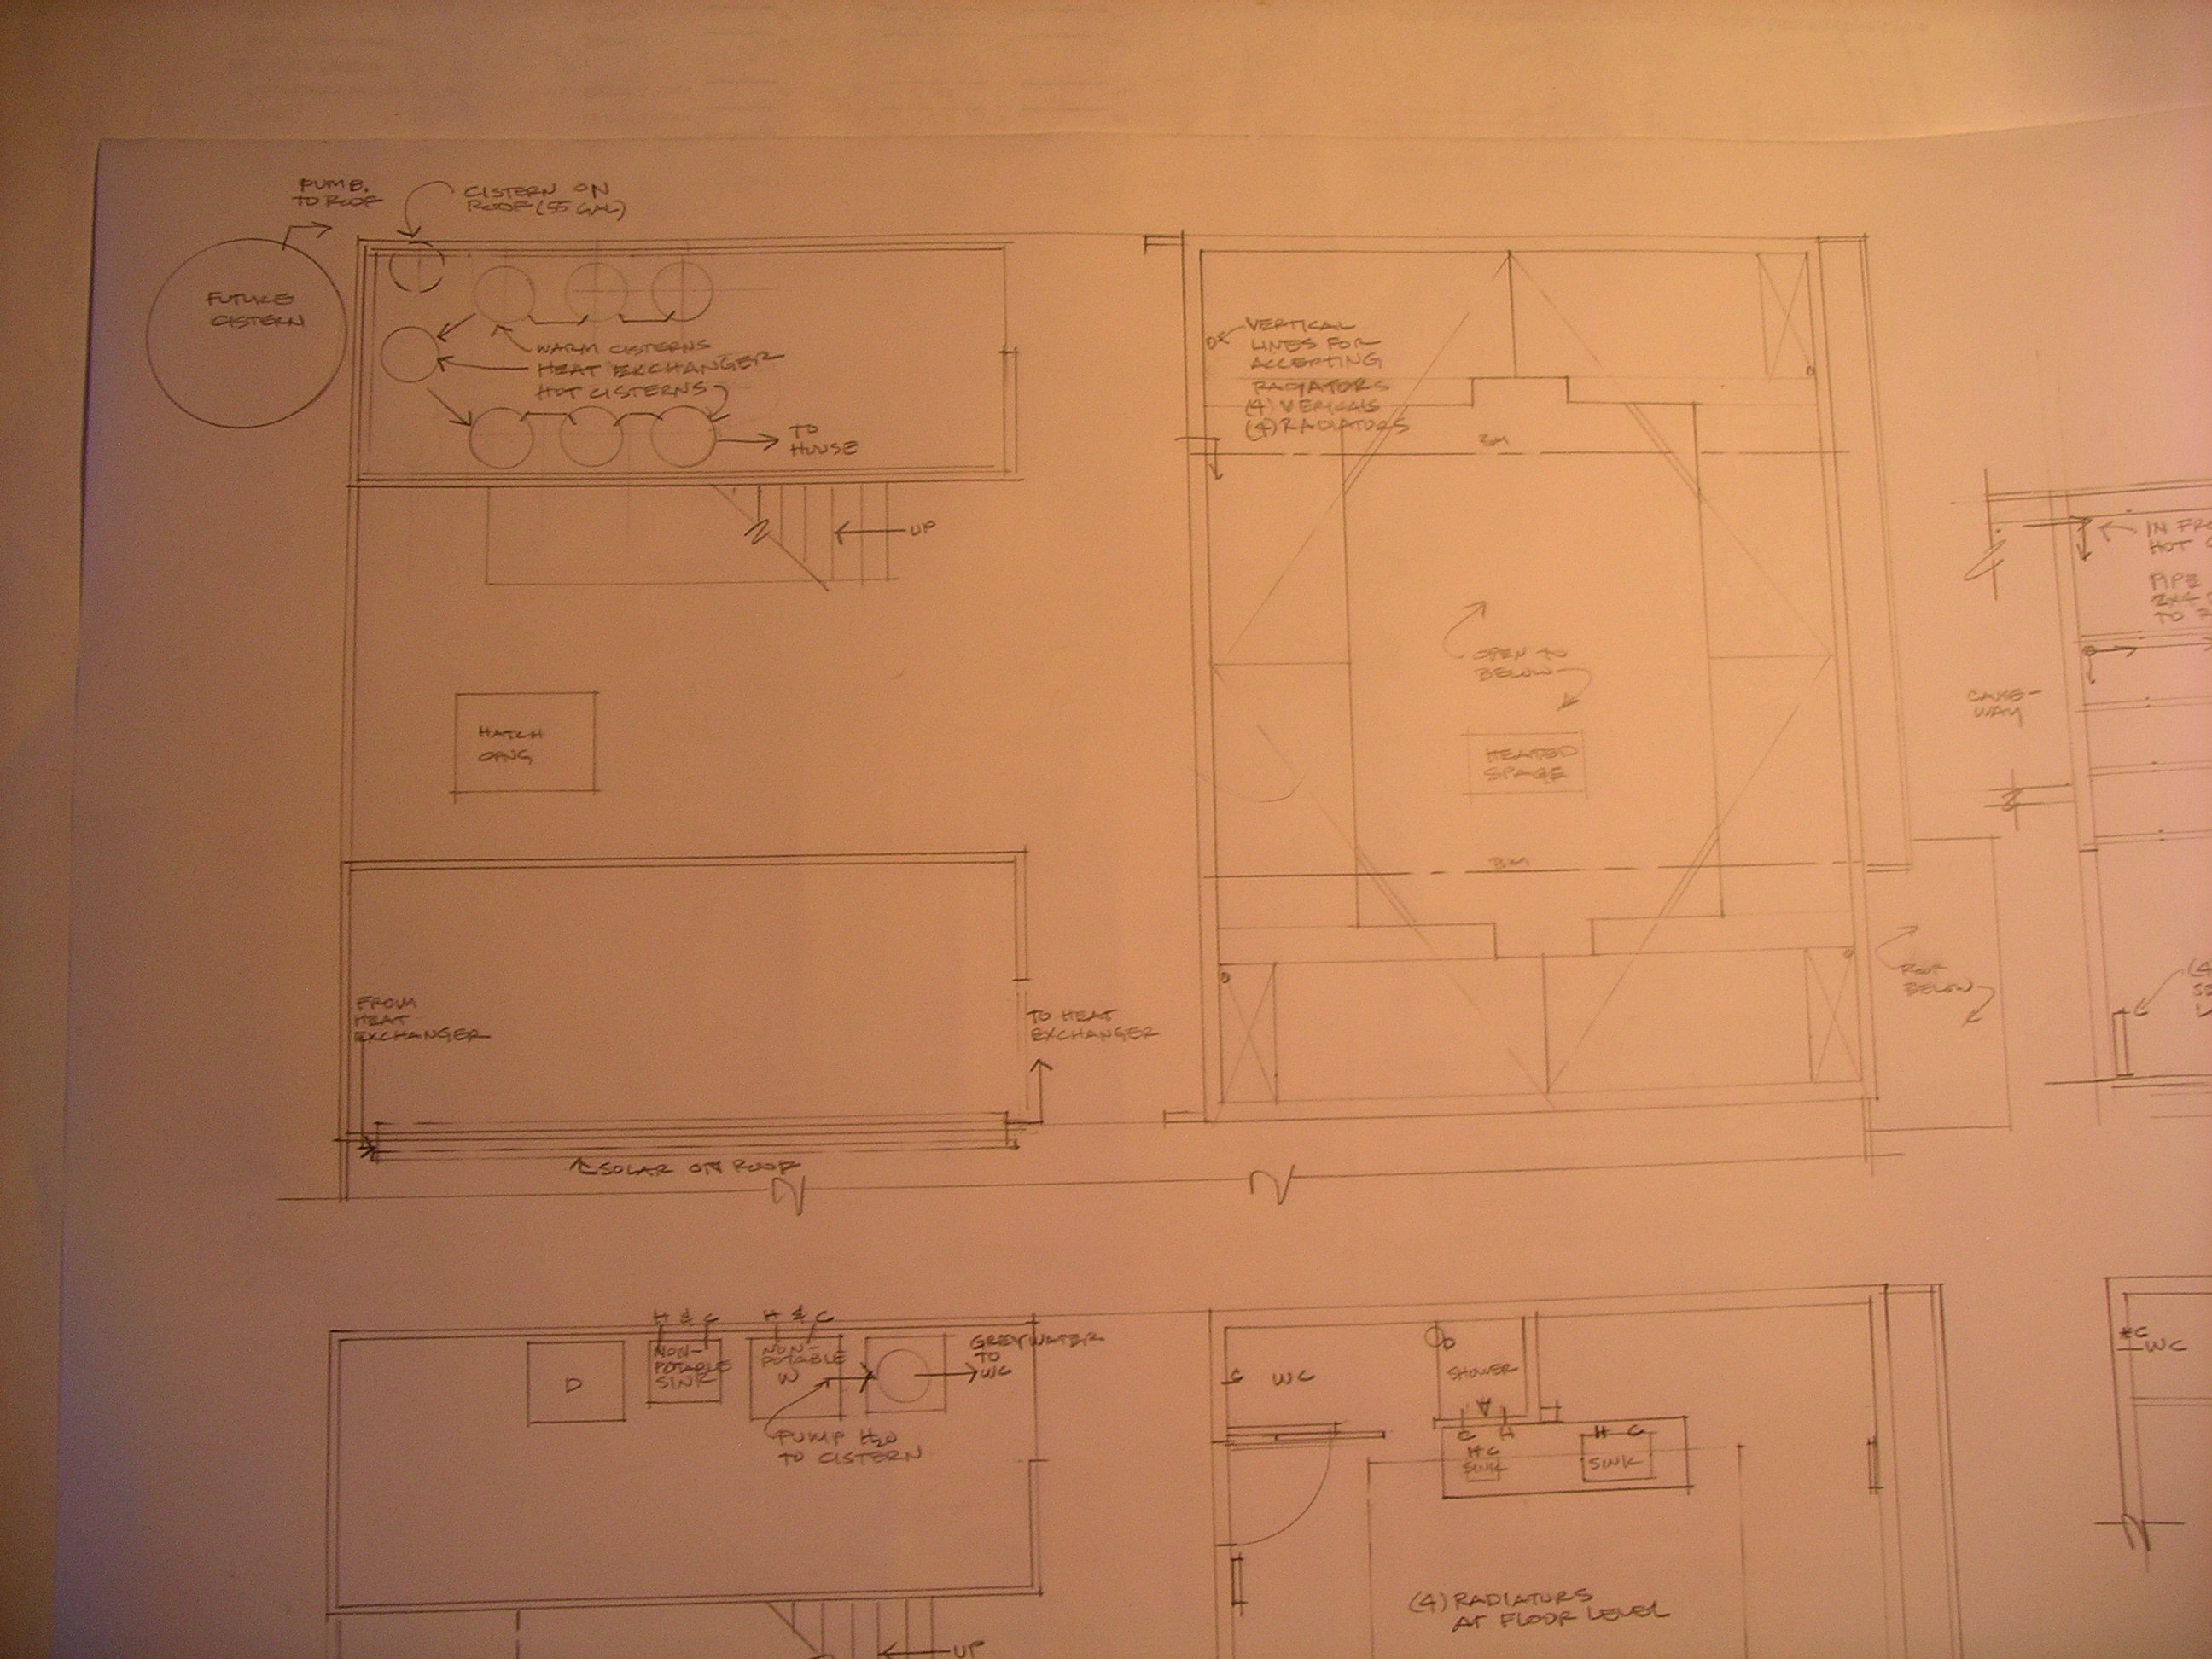 PUMP.
TO ROOF
CISTERN ON
ROOF (55 GAL)
FUTURE
CISTERN
WARM CISTERNS
HEAT EXCHANGER
HOT CISTERNS
TO
HOUSE
UP
HATCH
OPNG
FROM
HEAT
EXCHANGER
TO HEAT
EXCHANGER
SOLAR ON ROOF
VERTICAL
LINES FOR
ACCEPTING
RADIATORS
(4) VERTICALS
(4) RADIATORS
BM
OPEN TO
BELOW
HEATED
SPACE
BM
ROOF
BELOW
CAUSE-
WAY
IN FR
HOT
PIPE
2X4
TO
(4
H & C
H & C
D
NON-
POTABLE
SINK
NON-
POTABLE
W
GREYWATER
TO
WC
PUMP H2O
TO CISTERN
C
WC
SHOWER
C H
H C
SINK
H C
SINK
(4) RADIATORS
AT FLOOR LEVEL
UP
C
WC